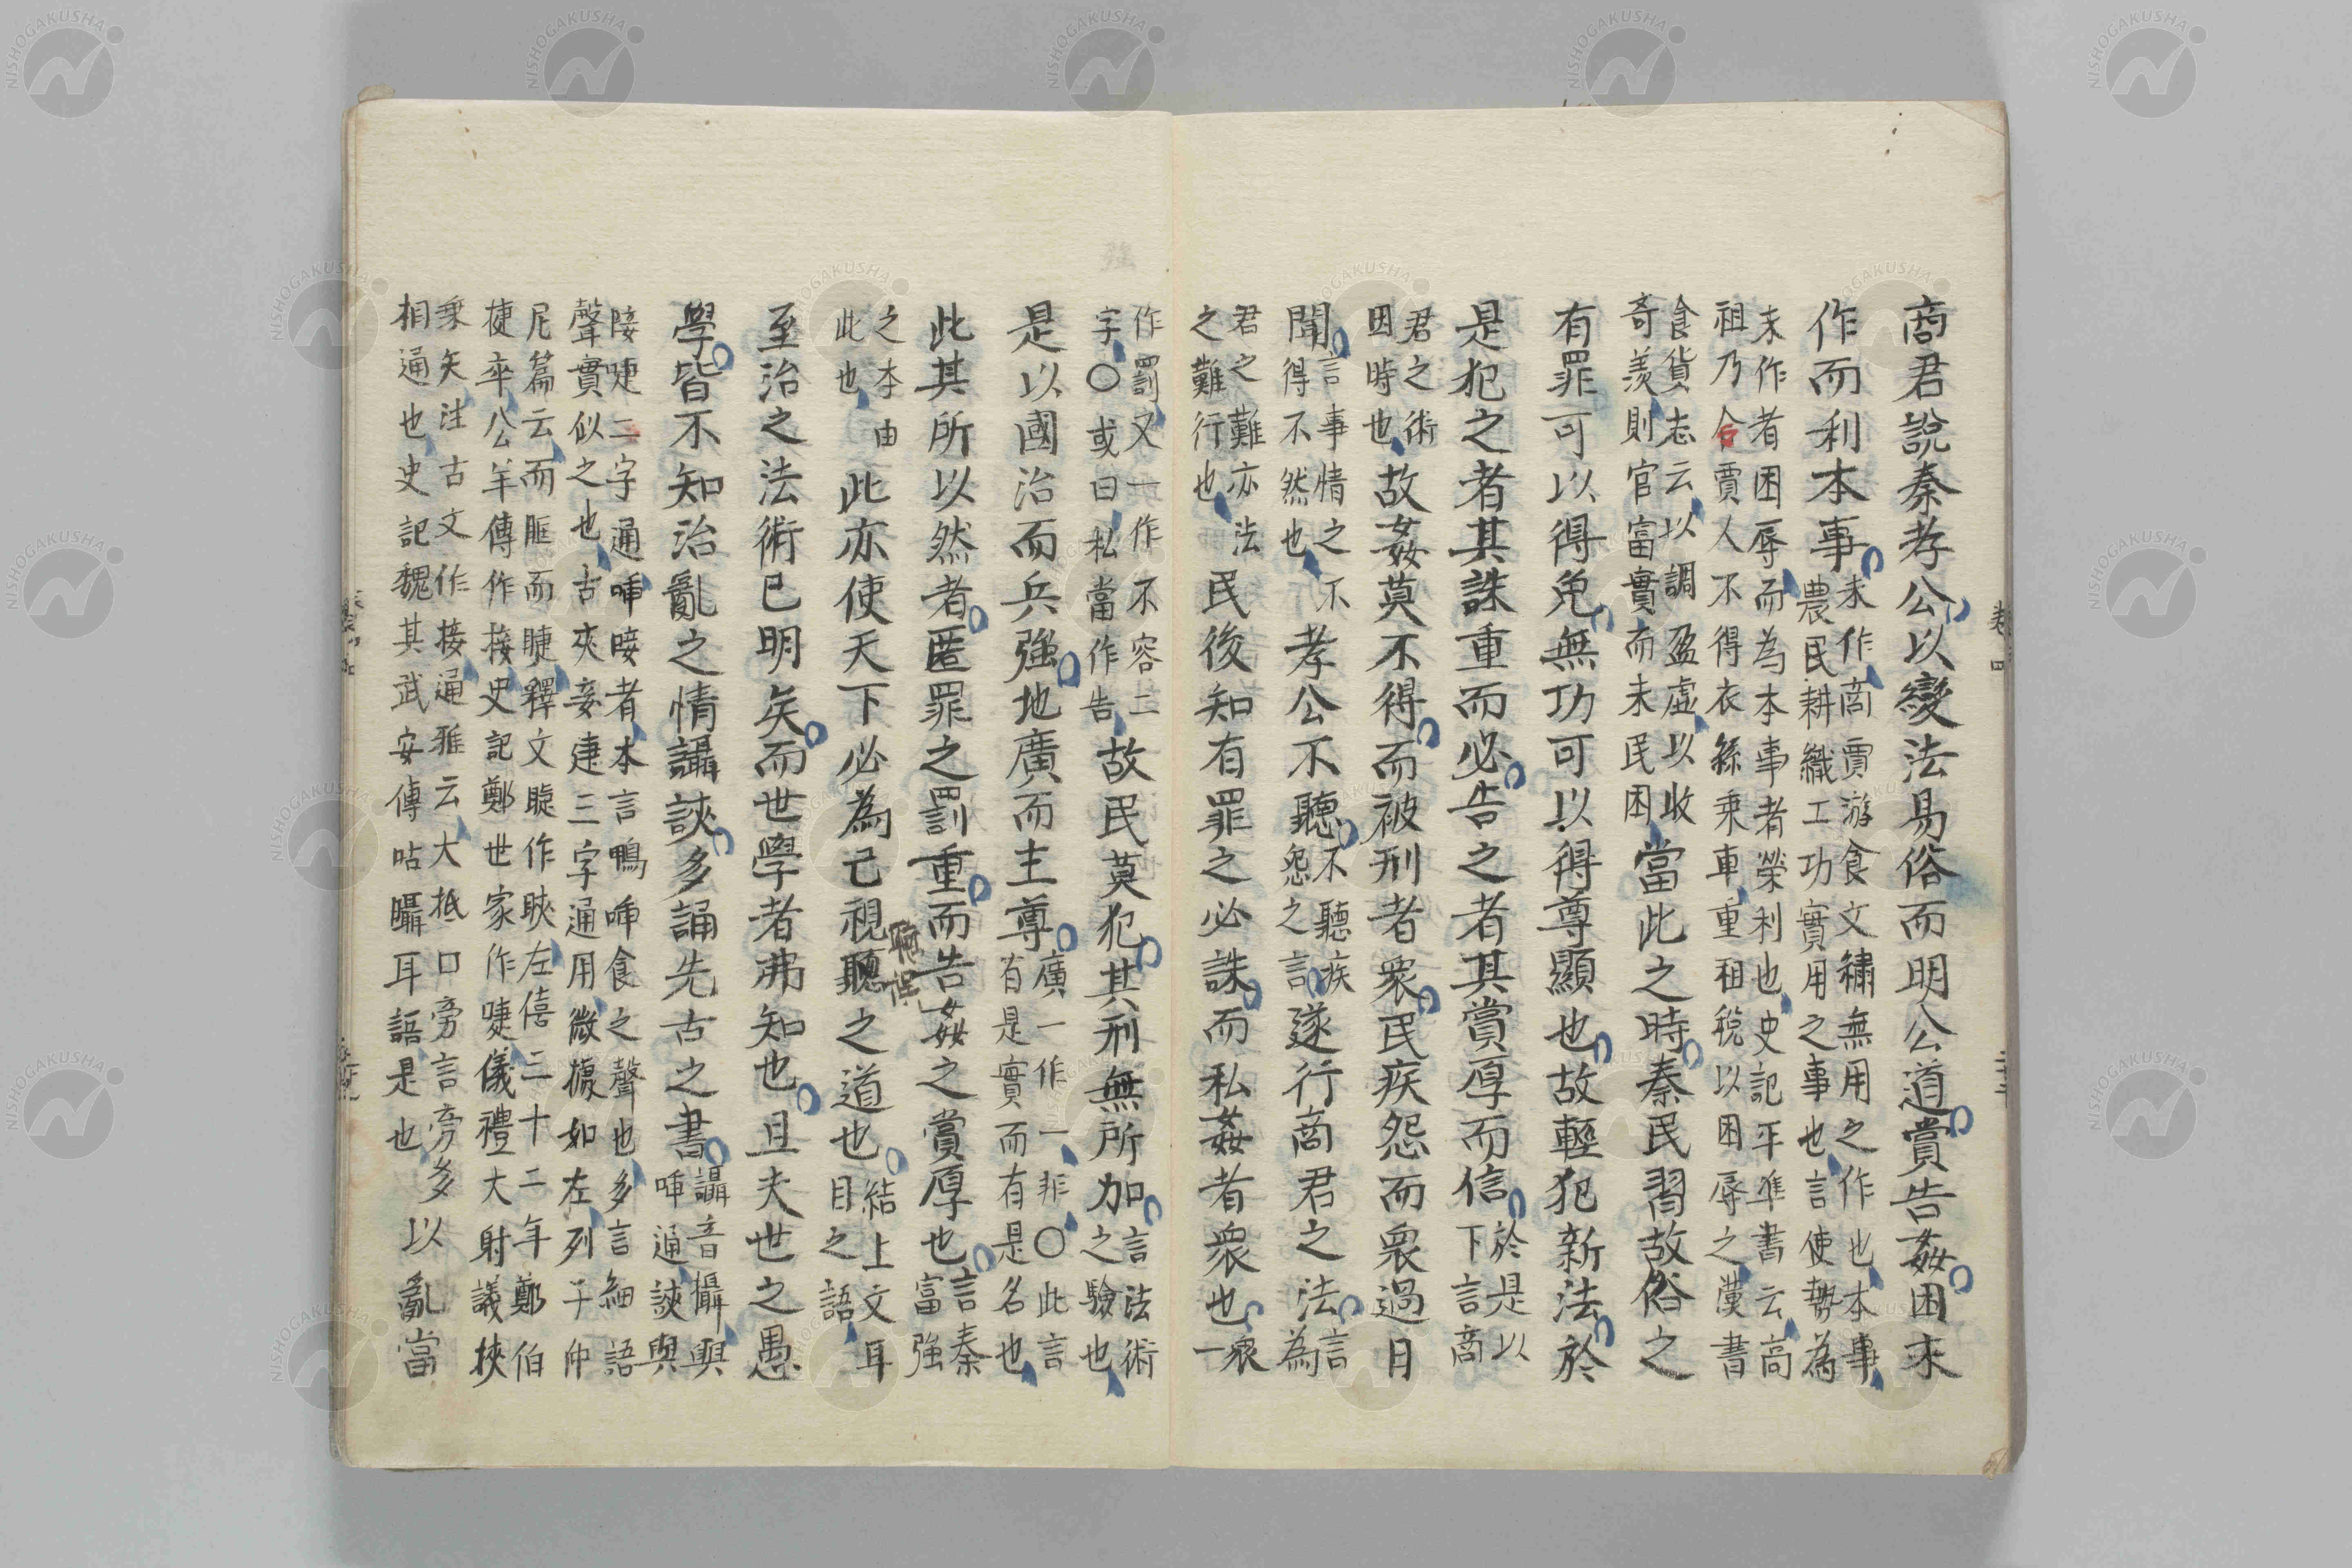 商君說秦孝公以變法易俗而明公道賞告姦困末
作而利本事末作商賈游食文繡無用之作也本事
農民耕織工功實用之事也言使勢為
末作者困辱而為本事者榮利也史記平準書云高
祖乃令賈人不得衣絲乘車重租稅以困辱之漢書
食貨志云以調盈虛以收
奇羨則官富實而末民困當此之時秦民習故俗之
有罪可以得免無功可以得尊顯也故輕犯新法於
是犯之者其誅重而必告之者其賞厚而信於是以
下言商
君之術
困時也故姦莫不得而被刑者衆民疾怨而衆過日
聞言事情之不
得不然也孝公不聽不聽疾
怨之言遂行商君之法言
為
君之難亦法
之難行也民後知有罪之必誅而私姦者衆也衆
一
作罰又一作不容二
字〇或曰私當作告故民莫犯其刑無所加言法術
之驗也
是以國治而兵強地廣而主尊廣一作一非〇此言
有是實而有是名也
此其所以然者匿罪之罰重而告姦之賞厚也言秦
富強
之本由
此也此亦使天下必為己視聽之道也結上文耳
目之語
至治之法術已明矣而世學者弗知也且夫世之愚
學皆不知治亂之情讘䛟多誦先古之書讘音攝與
㖸通䛟與
唼二字通㖸唼者本言鴨㖸食之聲也多言細語
聲實似之也古夾妾疌三字通用微據如左列子仲
尼篇云而眶而睫釋文睫作䀹左僖三十二年鄭伯
捷卒公羊傳作接史記鄭世家作啑儀禮大射議挾
乘矢注古文作接通雅云大抵口旁言旁多以亂當
相通也史記魏其武安傳呫囁耳語是也
卷四
強